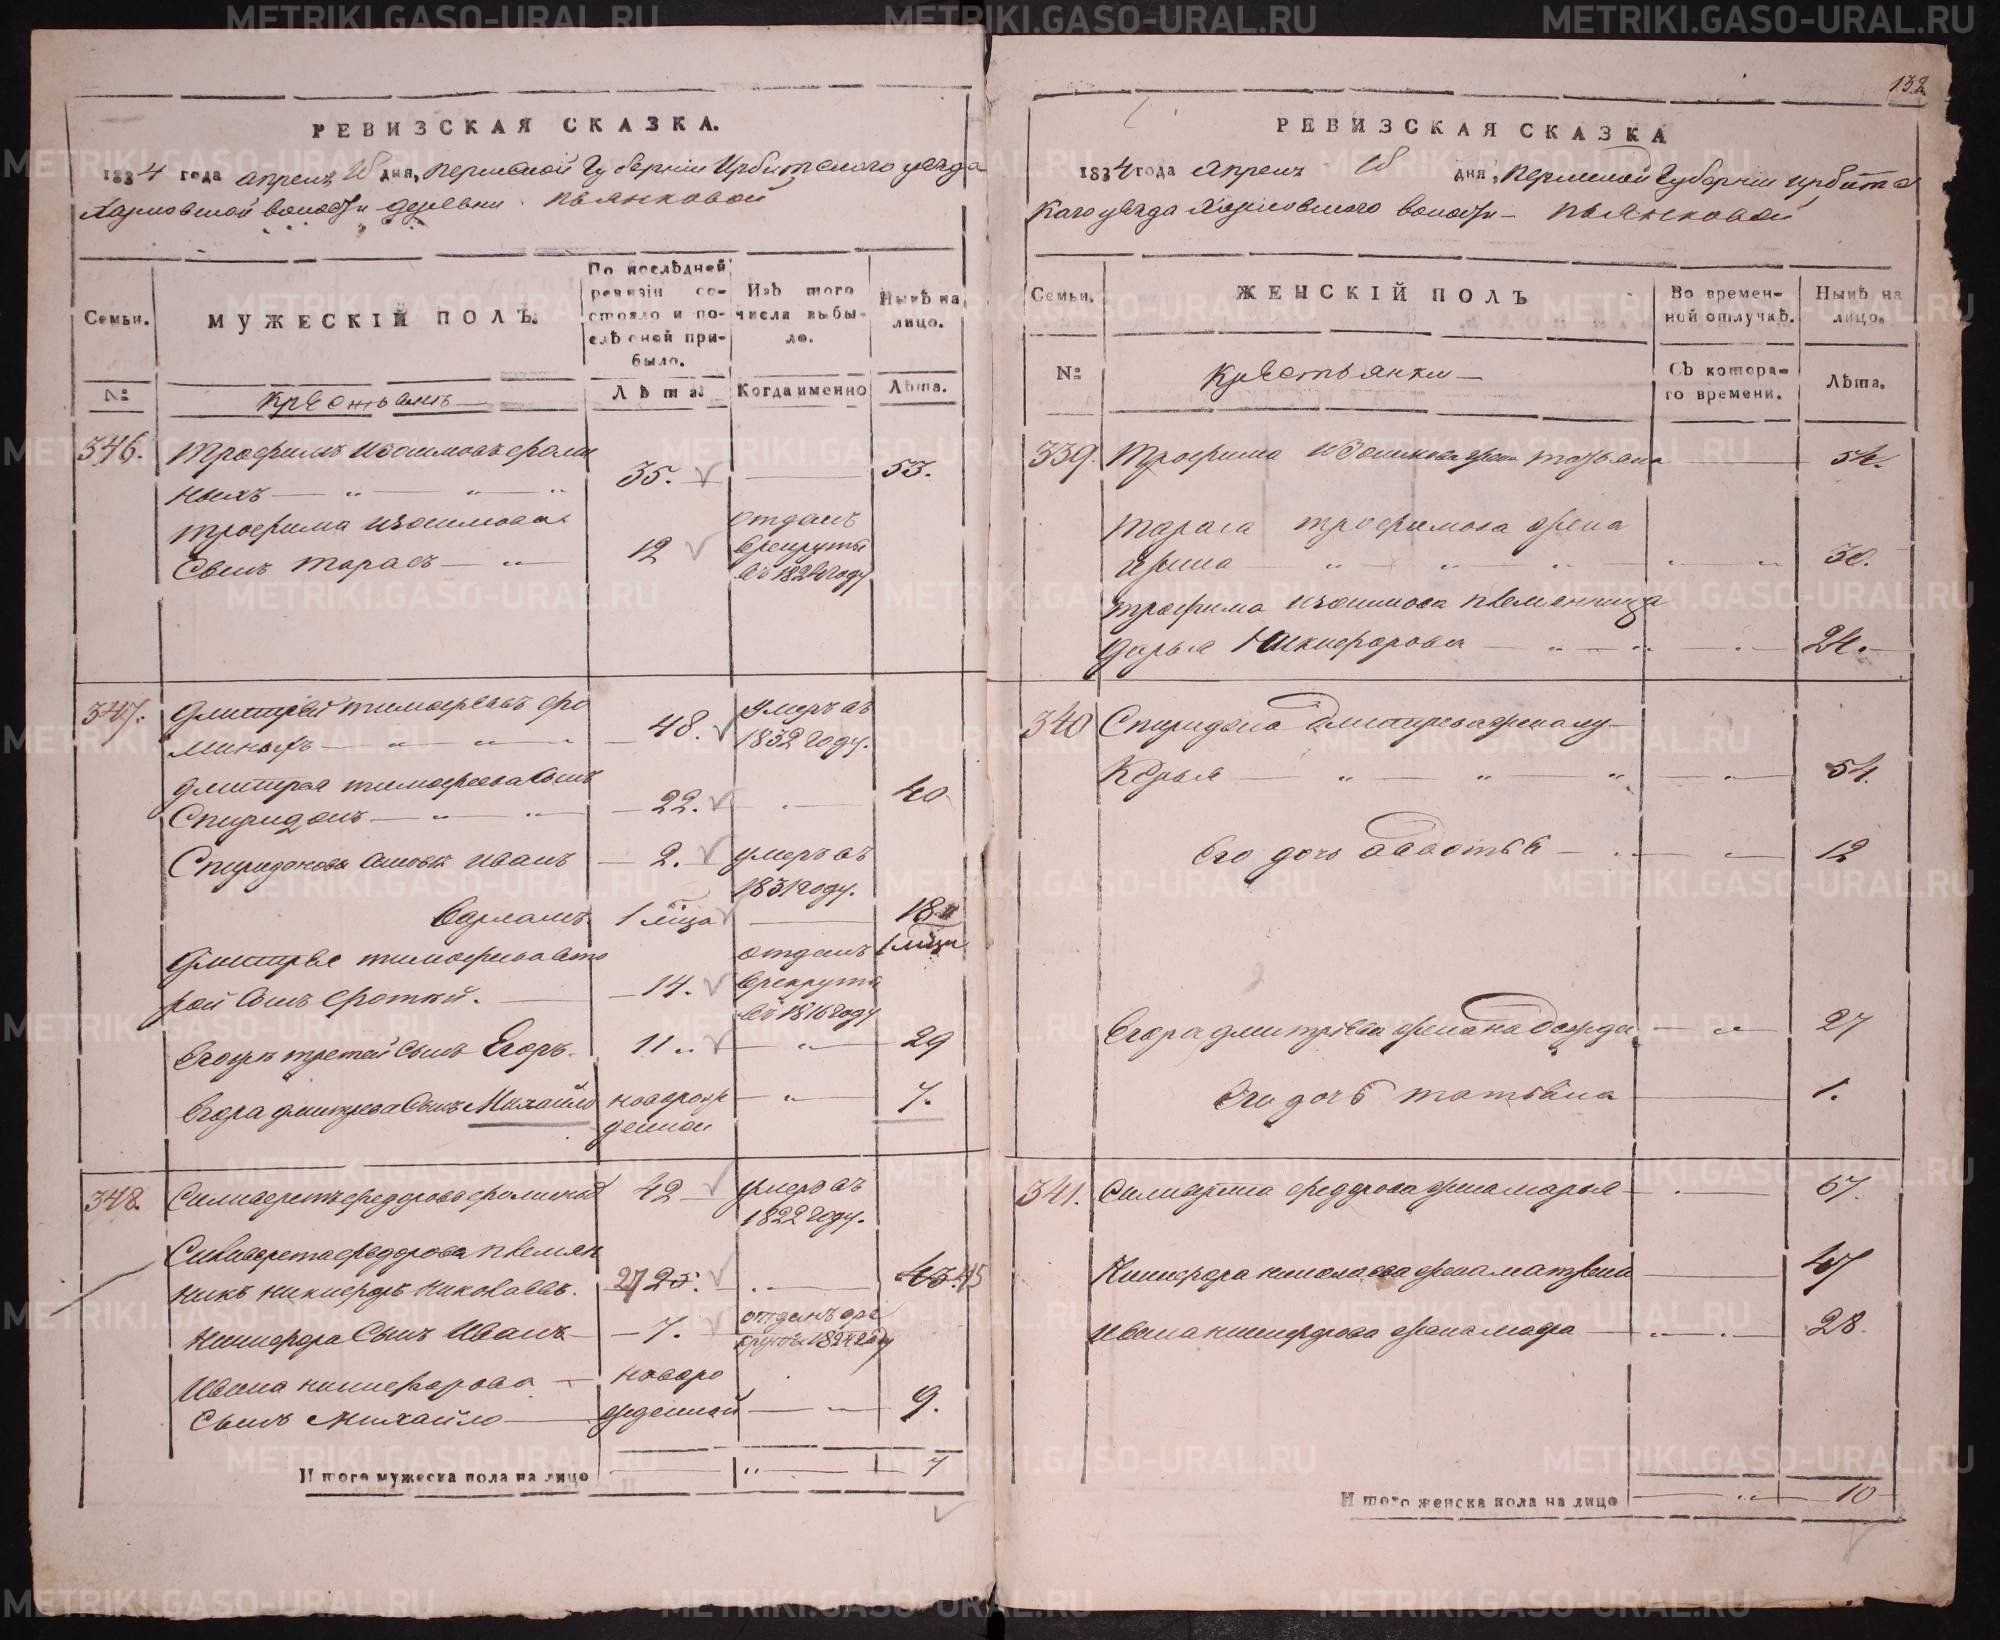 132
РЕВИЗСКАЯ СКАЗКА.
1834 года апреля дня, Пермской Губернии Ирбитского уезда
Харловской волости деревни Пьянковой
Семьи.
МУЖЕСКІЙ ПОЛЪ.
По послѣдней ревизіи состояло и послѣ оной прибыло.
Изъ того числа выбыло.
Нынѣ на лицо.
№
Крестьянъ
Лѣта
Когда именно
Лѣта.
346. Трофимъ Изосимовъ Фоми
ныхъ 35. 53.
Трофима Изосимова
Сынъ Тарасъ 12 отданъ в рекруты въ 1824 году
347. Дмитрей Тимофеевъ Фо
миныхъ 48. умеръ въ 1832 году.
Дмитрея Тимофеева сынъ
Спиридонъ 22. 40
Спиридонова сыновья Иванъ 2. умеръ въ 1831 году.
Варламъ 1 м͠ца 18 1 м͠ца
Дмитрея Тимофеева вто
рой сынъ Фотей. 14. отданъ в рекруты въ 1816 году
Егожъ третей сынъ Егоръ. 11 29
Егора Дмитрева сынъ Михайло новорожденной 7.
348. Силиверстъ Федоровъ Фоминыхъ 42 умеръ въ 1822 году.
Силиверста Федорова племян
никъ Никифоръ Николаевъ. 27 25. 43 45
Никифора сынъ Иванъ 7. отданъ в рекруты 1824 году
Ивана Никифорова новоро
Сынъ Михайло жденной 9.
Итого мужеска пола на лицо 7
РЕВИЗСКАЯ СКАЗКА
1834 года Апреля дня, Пермской Губернии Ирбитс
каго уезда Харловской волости Пьянковой
Семьи.
ЖЕНСКІЙ ПОЛЪ
Во временной отлучкѣ.
Нынѣ на лицо.
№
Крестьянки
Съ котораго времени.
Лѣта.
339. Трофима Изосимова жена Татьяна 54.
Тараса Трофимова жена
Ирина 30.
Трофима Изосимова племянница
Дарья Никифорова 24.
340 Спиридона Дмитрева жена Лу
керья 54.
Его дочь Авдотья 12
Егора Дмитрева жена Надежда 27
Его дочь Татьяна 1.
341. Силиверста Федорова жена Марья 67.
Никифора Николаева жена Матрена 47
Ивана Никифорова жена 28.
Итого женска пола на лицо 10
METRIKI.GASO-URAL.RU